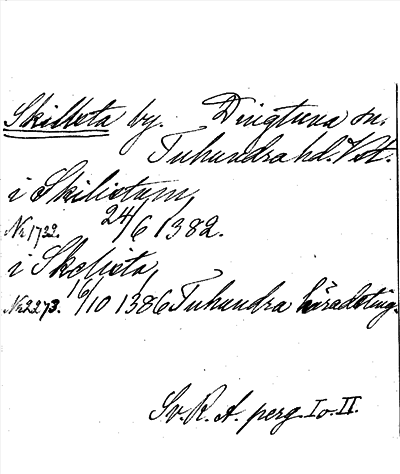 Skilleta by. Dingtuna sn.
Tuhundra hd. Vst.
i Skilistum
No 1732. 24/6 1382.
i Skelista
No 2273. 16/10 1386 Tuhundra häradsting.
Sv. R. A. perg. I o. II.